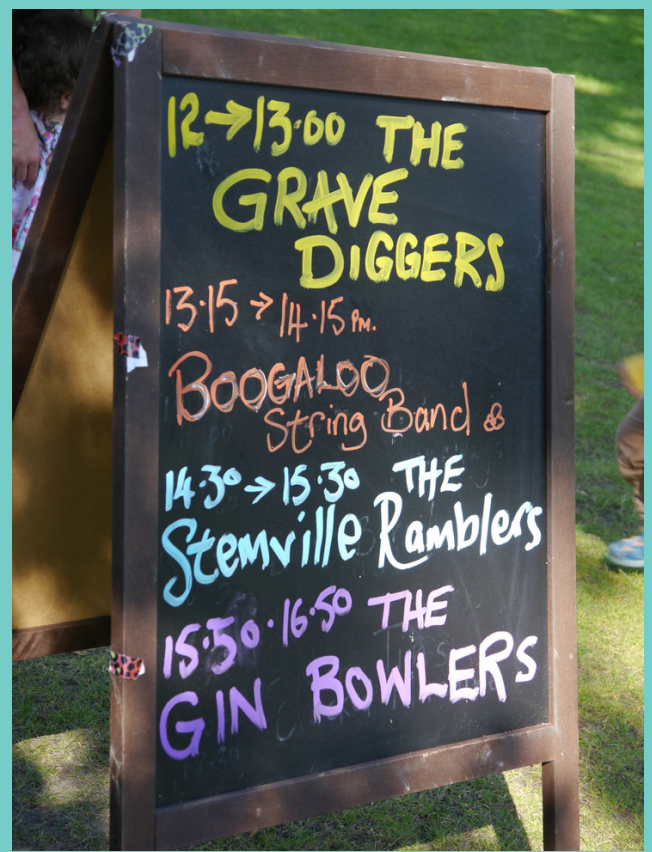 12→13·00 THE
GRAVE
DIGGERS
13·15→14·15 PM.
BOOGALOO
String Band
14·30→15·30 THE
Stemville Ramblers
15·50·16·50 THE
GIN BOWLERS